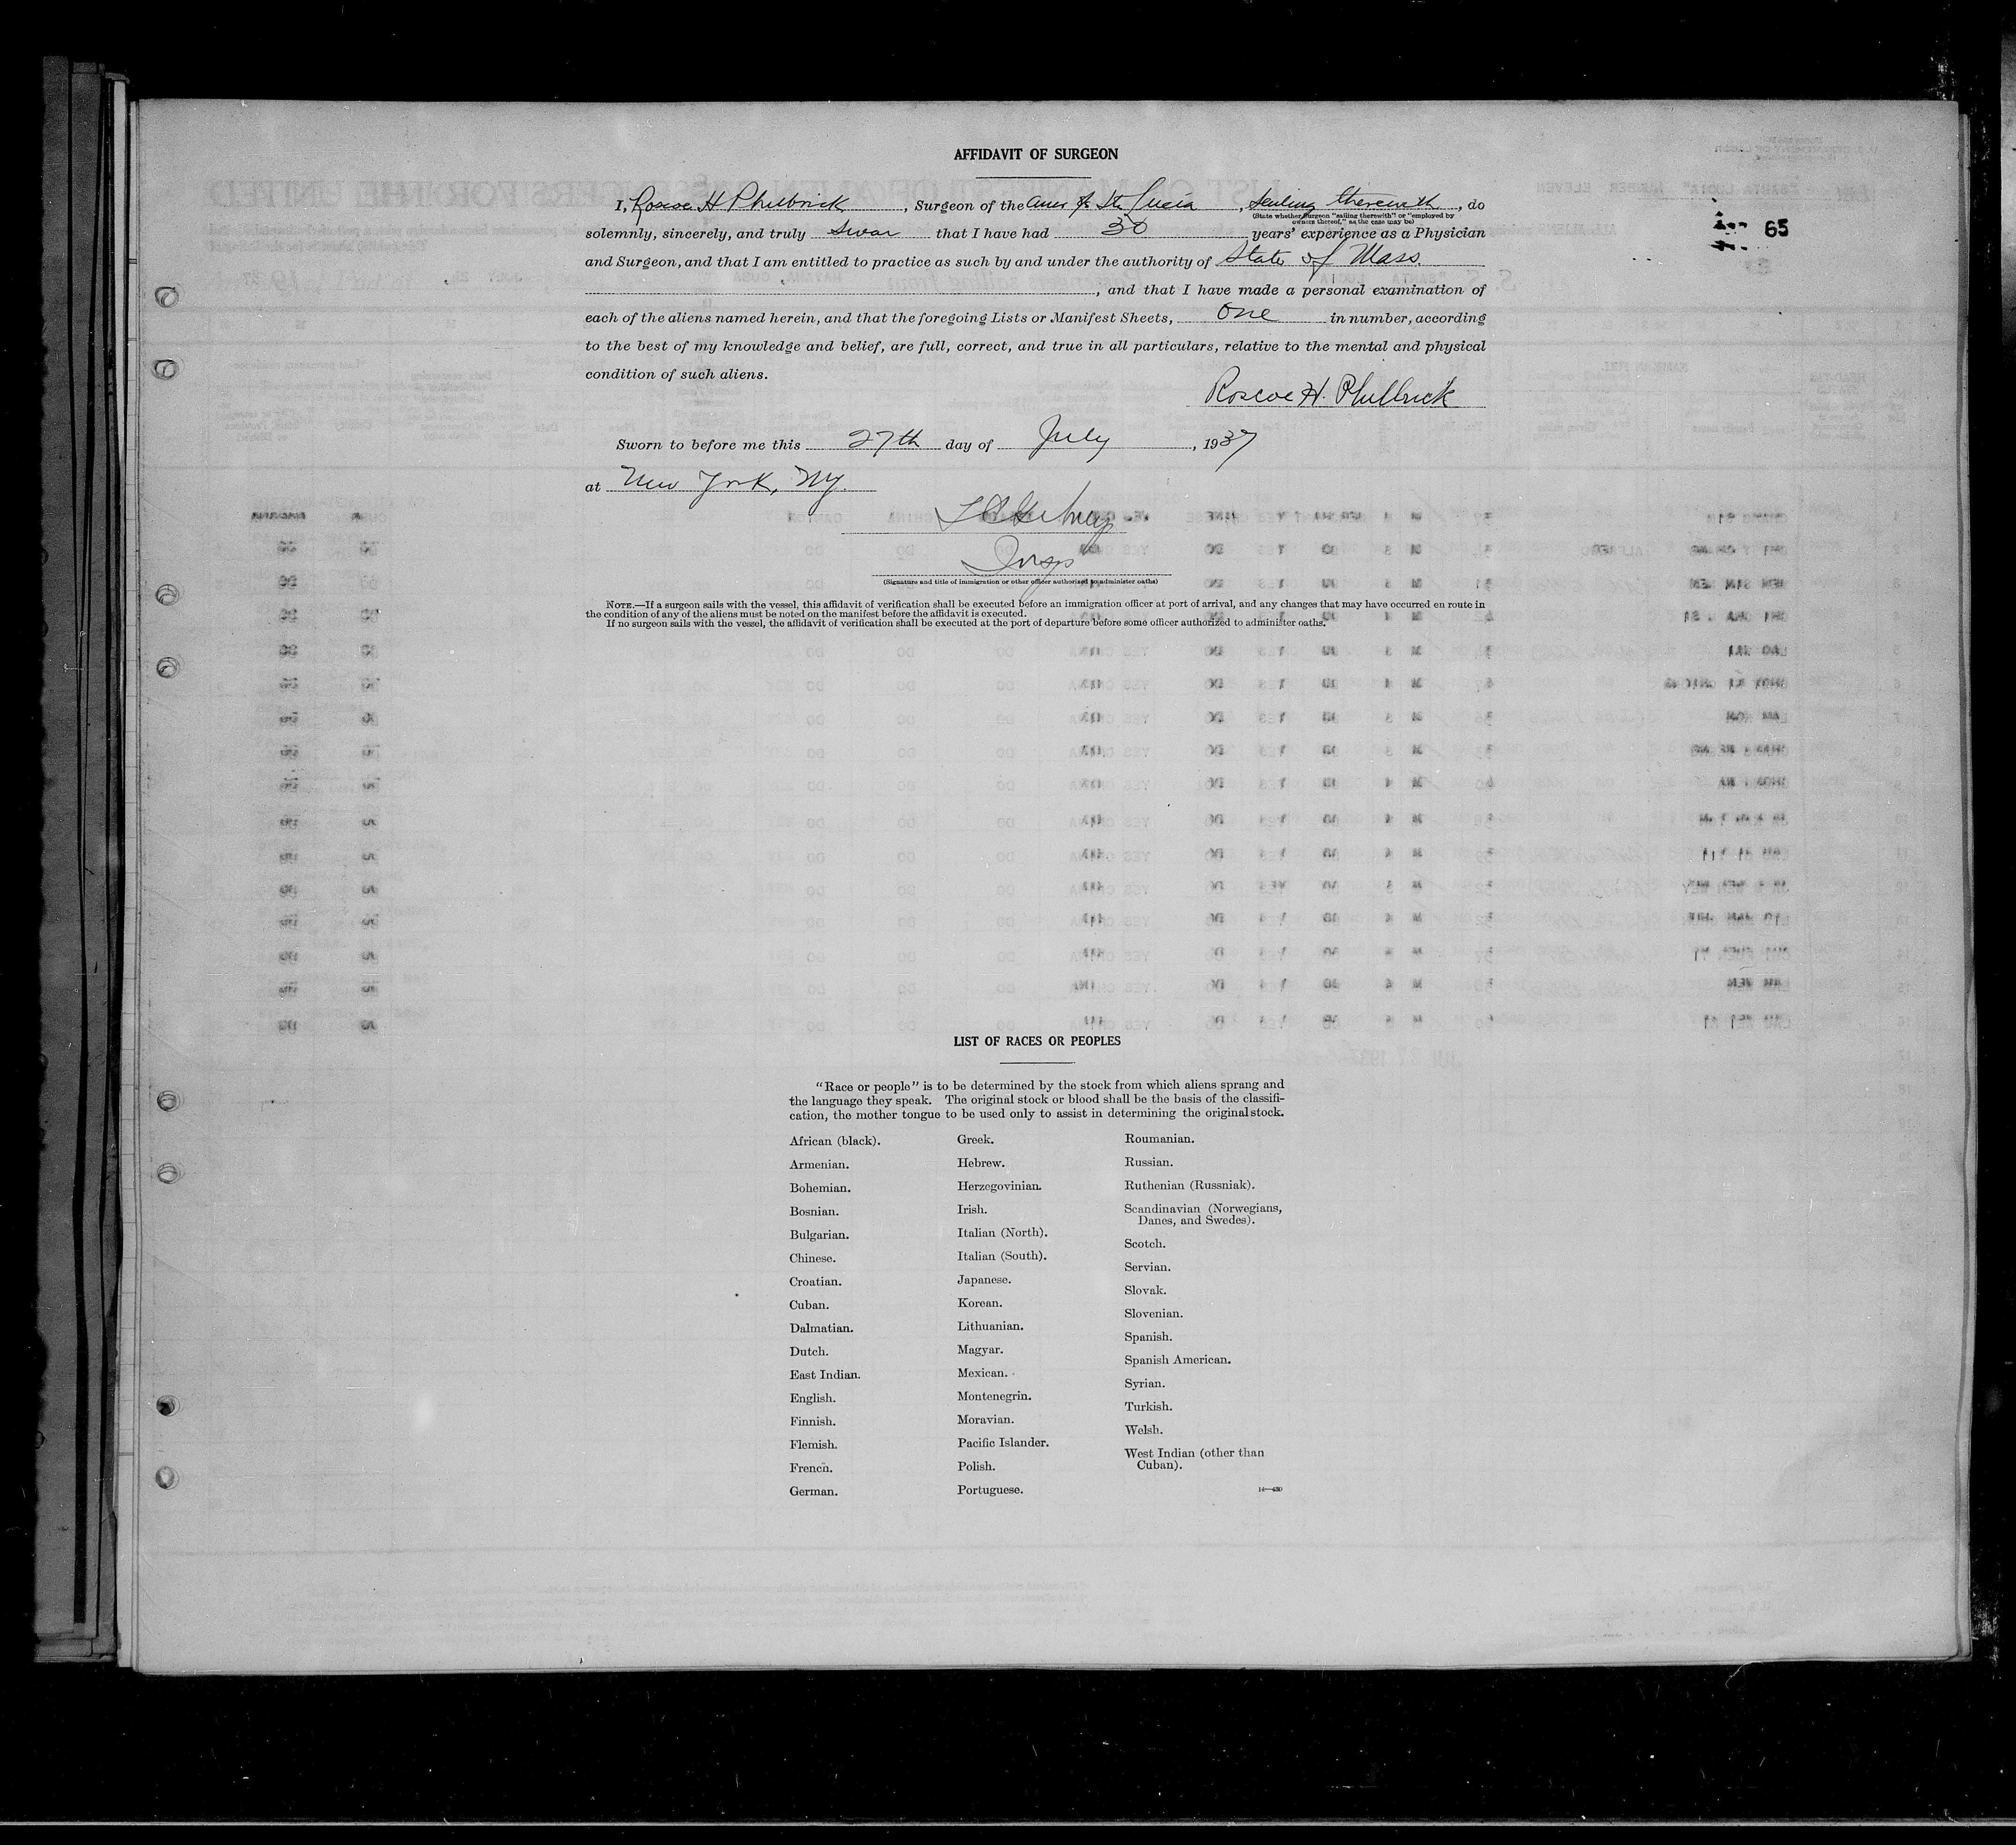 AFFIDAVIT OF SURGEON
65
I, Roscoe H Philbrick, Surgeon of the Amer SS Sta Lucia, sailing therewith, do
(State whether Surgeon "sailing therewith" or "employed by
owners thereof," as the case may be)
solemnly, sincerely, and truly swear that I have had 30 years' experience as a Physician
and Surgeon, and that I am entitled to practice as such by and under the authority of State of Mass.
, and that I have made a personal examination of
each of the aliens named herein, and that the foregoing Lists or Manifest Sheets, one in number, according
to the best of my knowledge and belief, are full, correct, and true in all particulars, relative to the mental and physical
condition of such aliens.
Roscoe H. Philbrick
Sworn to before me this 27th day of July, 1937
at New York, NY.
Insp
(Signature and title of immigration or other officer authorized to administer oaths)
NOTE.—If a surgeon sails with the vessel, this affidavit of verification shall be executed before an immigration officer at port of arrival, and any changes that may have occurred en route in
the condition of any of the aliens must be noted on the manifest before the affidavit is executed.
If no surgeon sails with the vessel, the affidavit of verification shall be executed at the port of departure before some officer authorized to administer oaths.
LIST OF RACES OR PEOPLES
"Race or people" is to be determined by the stock from which aliens sprang and
the language they speak. The original stock or blood shall be the basis of the classifi-
cation, the mother tongue to be used only to assist in determining the original stock.
African (black).
Armenian.
Bohemian.
Bosnian.
Bulgarian.
Chinese.
Croatian.
Cuban.
Dalmatian.
Dutch.
East Indian.
English.
Finnish.
Flemish.
French.
German.
Greek.
Hebrew.
Herzegovinian.
Irish.
Italian (North).
Italian (South).
Japanese.
Korean.
Lithuanian.
Magyar.
Mexican.
Montenegrin.
Moravian.
Pacific Islander.
Polish.
Portuguese.
Roumanian.
Russian.
Ruthenian (Russniak).
Scandinavian (Norwegians,
Danes, and Swedes).
Scotch.
Servian.
Slovak.
Slovenian.
Spanish.
Spanish American.
Syrian.
Turkish.
Welsh.
West Indian (other than
Cuban).